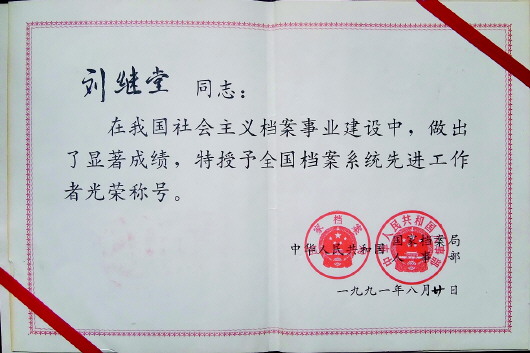 刘继堂 同志：
在我国社会主义档案事业建设中，做出
了显著成绩，特授予全国档案系统先进工作
者光荣称号。
中华人民共和国 国家档案局
人事部
一九九一年八月廿日